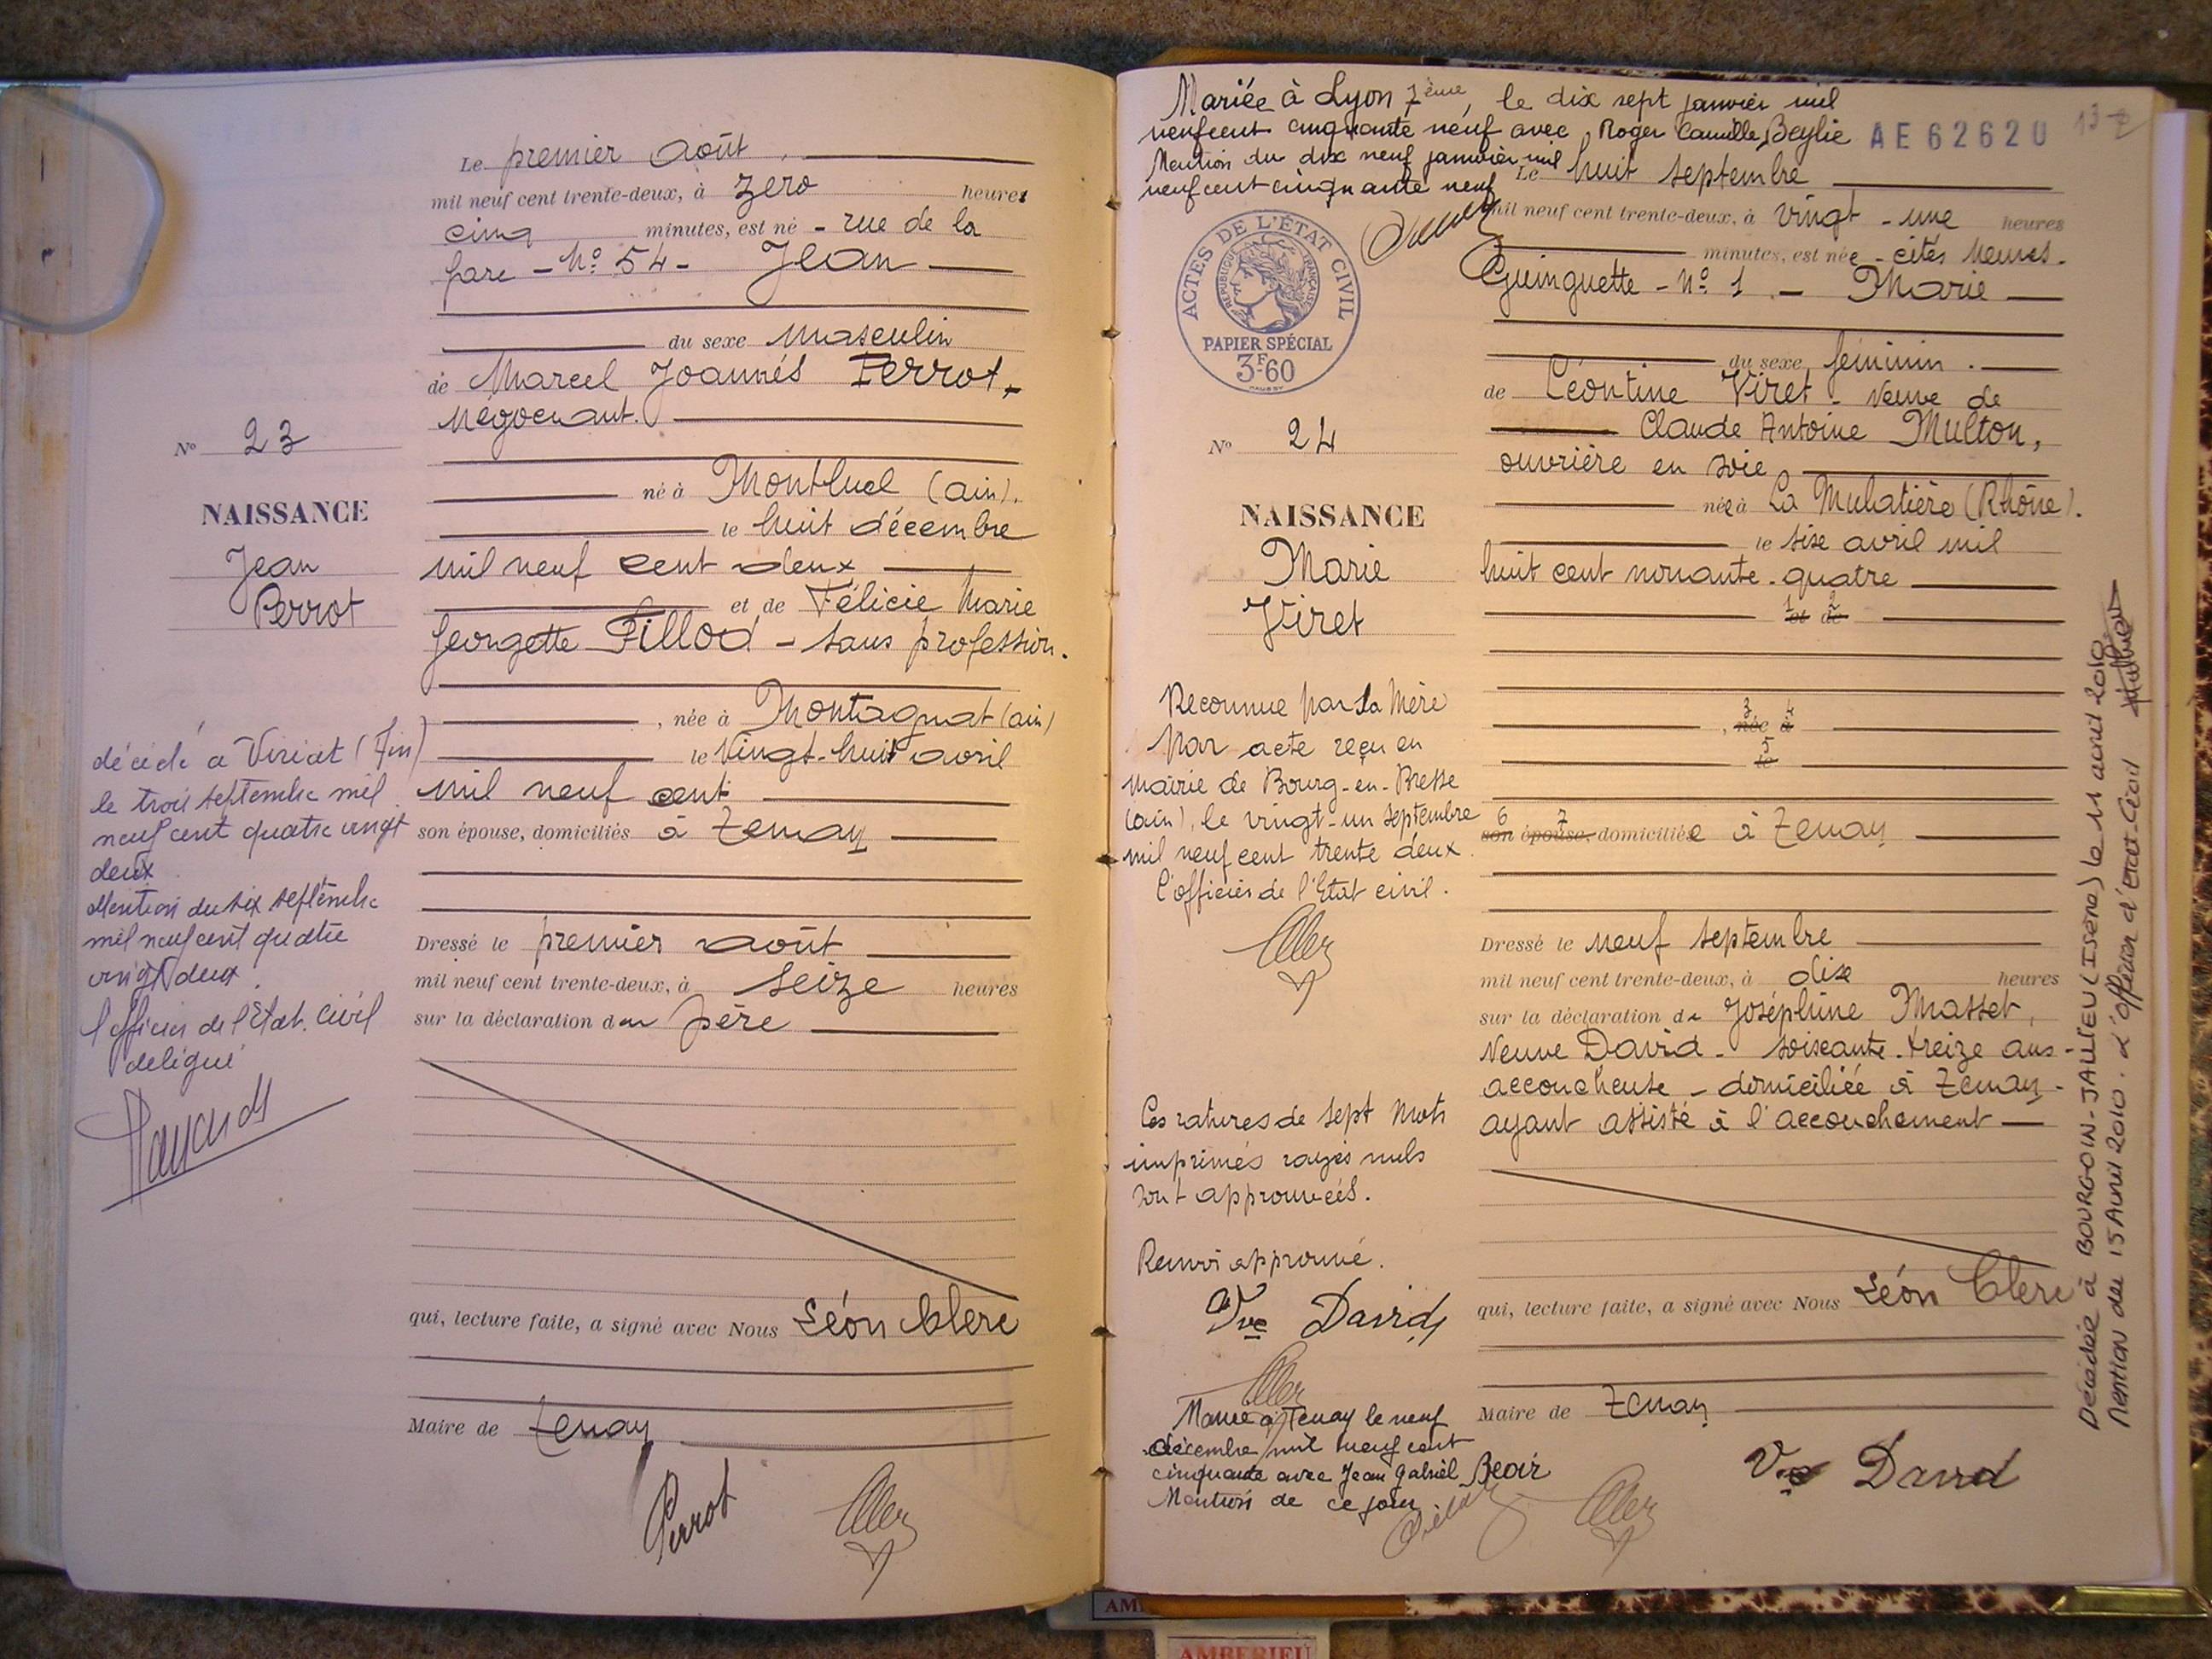 Le premier août
mil neuf cent trente-deux, à zéro heures
cinq minutes, est né - rue de la
gare - N° 54 - Jean
du sexe masculin
de Marcel Joannés Perrot,
négociant.
né à Montluel (ain).
le huit décembre
mil neuf cent deux
et de Félicie Marie
Georgette Pillod - sans profession.
, née à Montagnat (ain)
le vingt-huit avril
mil neuf cent
son épouse, domiciliés à Tenay
Dressé le premier août
mil neuf cent trente-deux, à seize heures
sur la déclaration du père
qui, lecture faite, a signé avec Nous Léon Clerc
Maire de Tenay
Perrot
N° 23
NAISSANCE
Jean
Perrot
décédé à Viriat (Ain)
le trois septembre mil
neuf cent quatre vingt
deux
Mention du six septembre
mil neuf cent quatre
vingt deux.
l'officier de l'Etat. Civil
délégué
Mariée à Lyon 7ème, le dix sept janvier mil
neufcent cinquante neuf avec Roger Camille Beylie
Mention du dix neuf janvier mil
neuf cent cinquante neuf
AE 62620
ACTES DE L'ÉTAT CIVIL
RÉPUBLIQUE FRANÇAISE
PAPIER SPÉCIAL
3F60
Le huit septembre
mil neuf cent trente-deux, à vingt-une heures
minutes, est née - cités neuves -
Guinguette - N° 1 - Marie
du sexe féminin.
de Léontine Viret - veuve de
Claude Antoine Multon,
ouvrière en soie
née à La Mulatière (Rhône).
le six avril mil
huit cent nonante-quatre
1 2
et de
3 4
, née à
5
le
6 7
son épouse, domiciliée à Tenay
Dressé le neuf septembre
mil neuf cent trente-deux, à dix heures
sur la déclaration de Joséphine Masset,
veuve David - soixante-treize ans -
accoucheuse - domiciliée à Tenay -
ayant assisté à l'accouchement
qui, lecture faite, a signé avec Nous Léon Clerc
Maire de Tenay
Vve David
N° 24
NAISSANCE
Marie
Viret
Reconnue par sa mère
par acte reçu en
mairie de Bourg-en-Bresse
(ain), le vingt-un septembre
mil neuf cent trente deux.
l'officier de l'Etat civil.
Les ratures de sept mots
imprimés rayés nuls
sont approuvées.
Renvoi approuvé.
Vve David
Mariée à Tenay le neuf
décembre mil neuf cent
cinquante avec Jean Gabriel
Mention de ce jour.
Décédée à BOURGOIN-JALLIEU (Isère) le 11 avril 2010
Mention du 15 Avril 2010. L'officier d'Etat-Civil
AMBERIEU